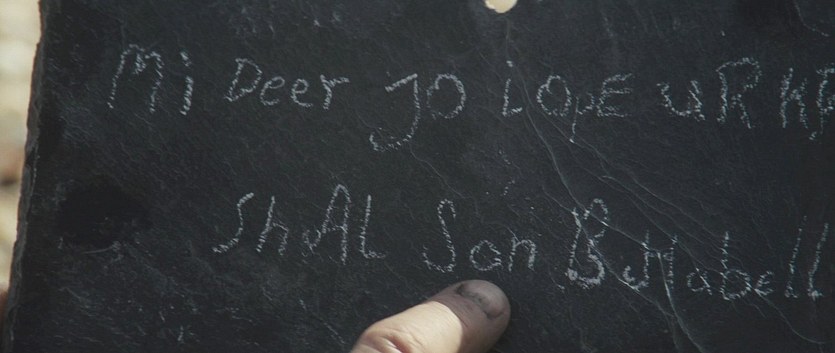 Mi Deer JO i OpE uR
ShAL Son B Habell